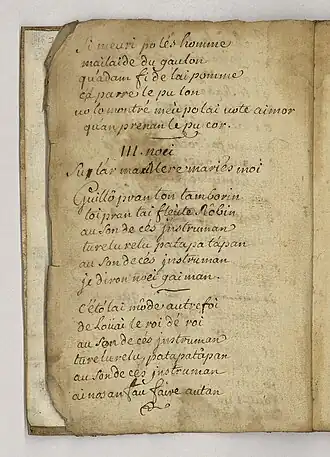 Si meuri po lés homme
mailaide du gaulon
qu'adam fi de lai pomme
ça parre le pu lon
vo lo montré meu po lai vote aimor
quan prenan le pu cor.
III. noei
Su lar ma mere mariés moi
Guillô pran ton tamborin
toi pran tai fleùte Rôbin
au son de cés instruman
turelurelu patapatapan
au son de ces instruman
je diron noei gaiman.
C'étó lai môde autrefoi
de loùai le roi dé roi
au son de cés instruman
turelurelu, patapatapan
au son de ces instruman
ai nos an fau faire autan